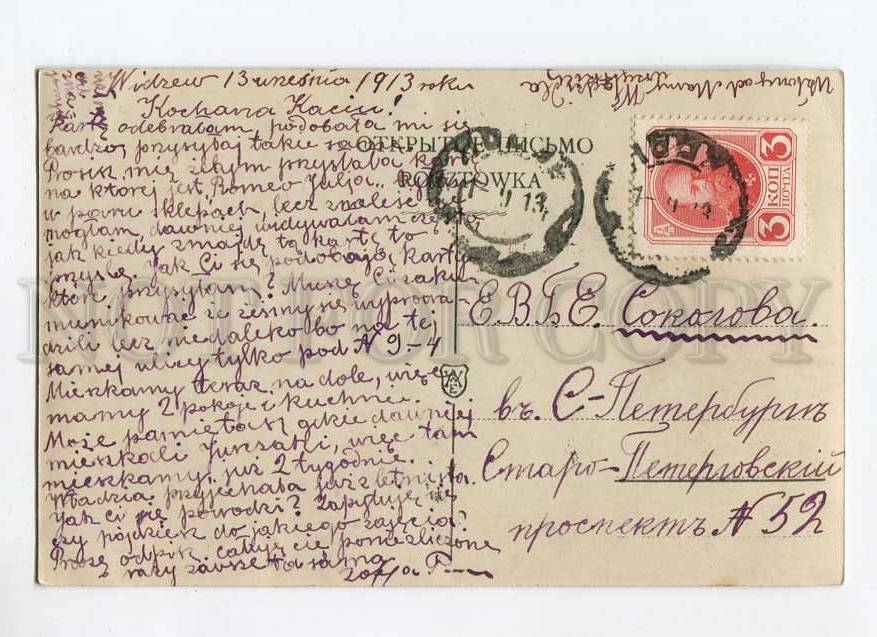 Widzew 13 września 1913 roku
Kochana Kaciu!
Kartę odebrałam, podobała mi się
bardzo, przysyłaj takie
ОТКРЫТОЕ ПИСЬМО
POCZTÓWKA
Prosiłaś mię żebym przysłała kartę
na której jest Romeo i Julja
w paru sklepach, lecz znaleść nie
mogłam, dawniej widywałam często
jak kiedy znajdę tą kartę to
przyślę. Jak Ci się podobają karty
które przysyłam? Muszę Ci zako-
munikować że żeśmy się wyprowa-
dzili lecz niedaleko bo na tej
samej ulicy tylko pod N 9-4
Mieszkamy teraz na dole, więc
mamy 2 pokoje i kuchnie.
Może pamiętasz gdzie dawniej
mieszkali więc tam
mieszkamy już 2 tygodnie.
Władzia przyjechała już z letniska.
Jak Ci się powodzi? Zapytuję się
czy pójdziesz do jakiego zajęcia?
Proszę odpisz. całuję cię ponadliczone
razy zawsze ta sama
Zofja P
3 КОП
ПОЧТА
3
Е.В.Б.Е. Соколова.
въ С-Петербургъ
Старо-Петергофскій
проспектъ N 52
NOT FOR COPY